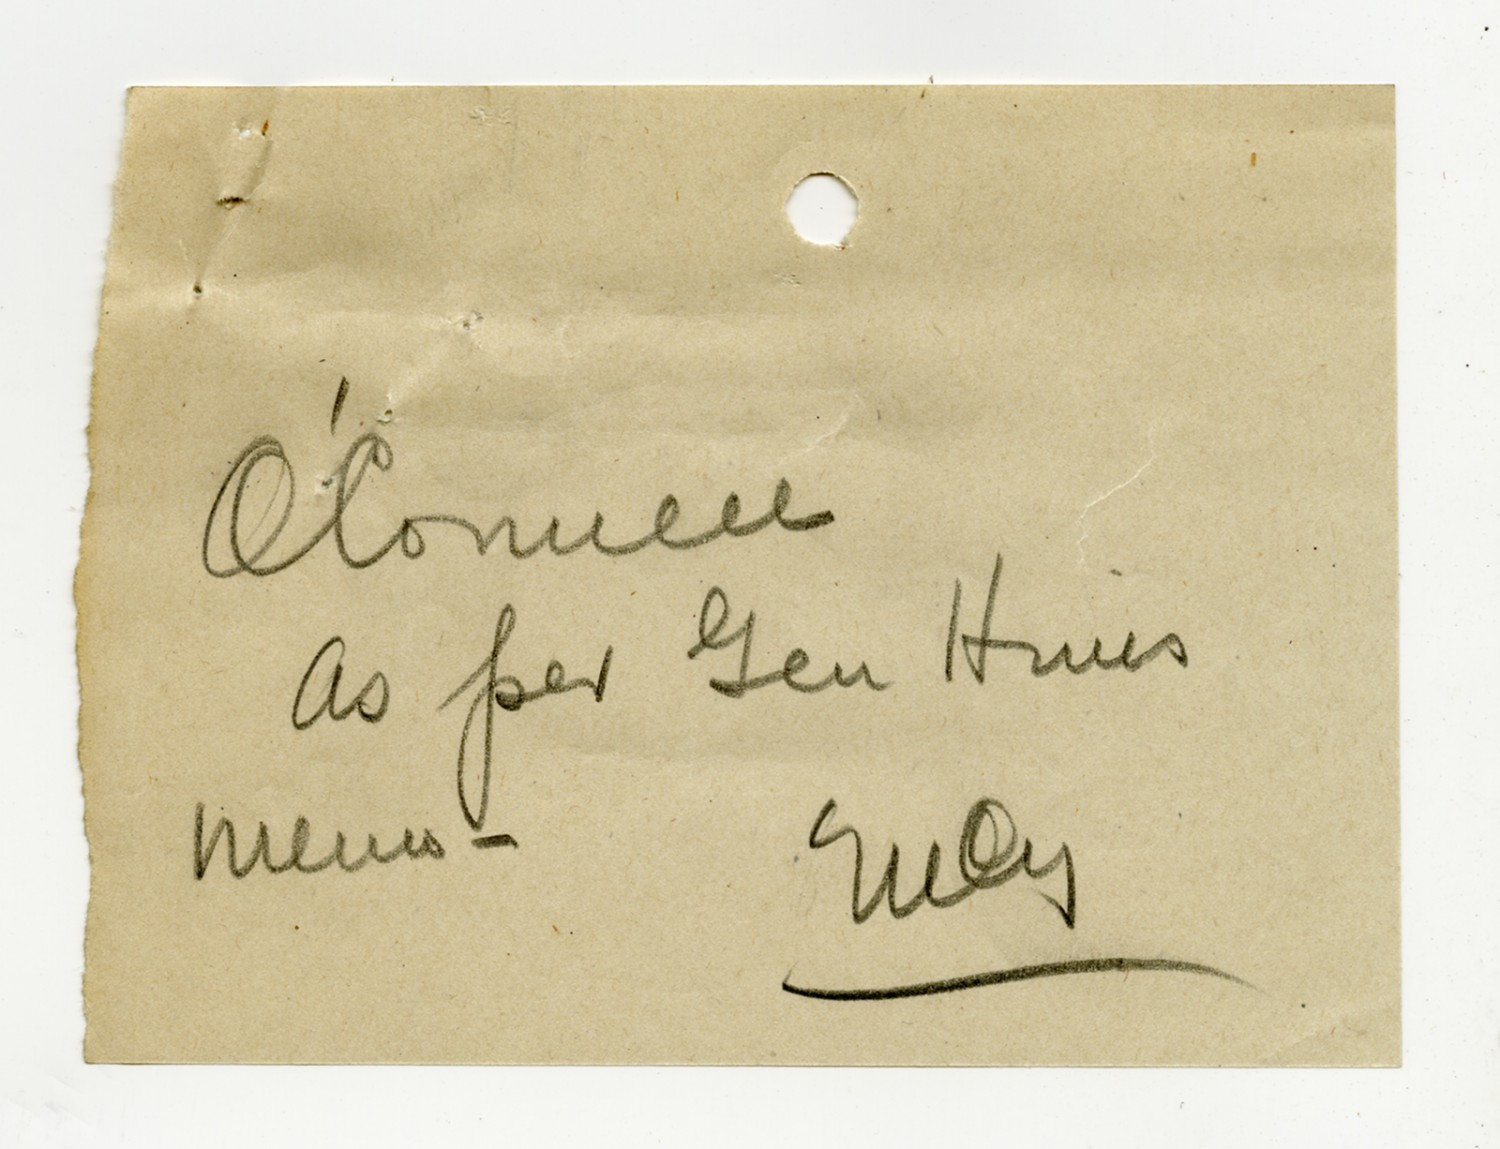 O'Connell
as per Gen Hines
memo -